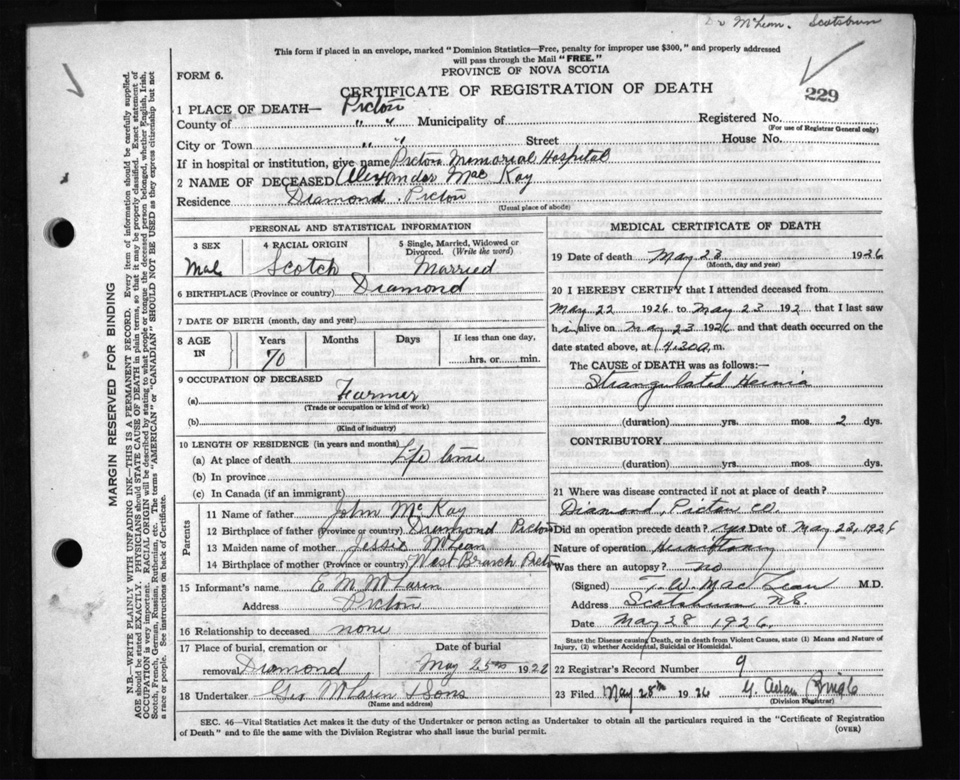 Dr McLean. Scotsburn
This form if placed in an envelope, marked "Dominion Statistics—Free, penalty for improper use $300," and properly addressed
will pass through the Mail "FREE."
PROVINCE OF NOVA SCOTIA
FORM 6.
CERTIFICATE OF REGISTRATION OF DEATH
229
1 PLACE OF DEATH— Pictou
County of " " Municipality of Registered No.
(For use of Registrar General only)
City or Town " " Street House No.
If in hospital or institution, give name Pictou Memorial Hospital
2 NAME OF DECEASED Alexander Mac Kay
Residence Diamond. Pictou
(Usual place of abode)
MARGIN RESERVED FOR BINDING
N.B.—WRITE PLAINLY WITH UNFADING INK—THIS IS A PERMANENT RECORD. Every item of information should be carefully supplied.
AGE should be stated EXACTLY. PHYSICIANS should STATE CAUSE OF DEATH in plain terms, so that it may be properly classified. Exact statement of
OCCUPATION is very important. RACIAL ORIGIN will be described by stating to what people or tongue the deceased person belonged, whether English, Irish,
Scotch, French, German, Russian, Ruthenian, etc. The terms "AMERICAN" or "CANADIAN" SHOULD NOT BE USED as they express citizenship but not
a race or people. See instructions on back of Certificate.
PERSONAL AND STATISTICAL INFORMATION
3 SEX
Male
4 RACIAL ORIGIN
Scotch
5 Single, Married, Widowed or
Divorced. (Write the word)
Married
6 BIRTHPLACE (Province or country) Diamond
7 DATE OF BIRTH (month, day and year)
8 AGE
IN
Years
70
Months
Days
If less than one day,
hrs. or min.
9 OCCUPATION OF DECEASED
(a) Farmer
(Trade or occupation or kind of work)
(b)
(Kind of industry)
10 LENGTH OF RESIDENCE (in years and months)
(a) At place of death Life time
(b) In province
(c) In Canada (if an immigrant)
Parents
11 Name of father John McKay
12 Birthplace of father (Province or country) Diamond Pictou
13 Maiden name of mother Jessie McLean
14 Birthplace of mother (Province or country) West Branch Pictou
15 Informant's name E M McLaren
Address Pictou
16 Relationship to deceased none
17 Place of burial, cremation or Date of burial
removal Diamond May 25th 1926
18 Undertaker Geo McLaren & Sons
(Name and address)
MEDICAL CERTIFICATE OF DEATH
19 Date of death May 23 1926
(Month, day and year)
20 I HEREBY CERTIFY that I attended deceased from
May 22 1926 to May 23 192 that I last saw
him alive on May 23 1926 and that death occurred on
date stated above, at m.
The CAUSE of DEATH was as follows:—
Strangulated Hernia
(duration) yrs. mos. 2 dys.
CONTRIBUTORY
(duration) yrs. mos. dys.
21 Where was disease contracted if not at place of death?
Diamond, Pictou Co.
Did an operation precede death? yes Date of May 22, 1926
Nature of operation
Was there an autopsy? no
(Signed) T. W. MacLean M.D.
Address Scotsburn N.S.
Date May 28 1926.
State the Disease causing Death, or in death from Violent Causes, state (1) Means and Nature of
Injury, (2) whether Accidental, Suicidal or Homicidal.
22 Registrar's Record Number 9
23 Filed May 28th 1926
(Division Registrar)
SEC. 46—Vital Statistics Act makes it the duty of the Undertaker or person acting as Undertaker to obtain all the particulars required in the "Certificate of Registration
of Death" and to file the same with the Division Registrar who shall issue the burial permit. (OVER)